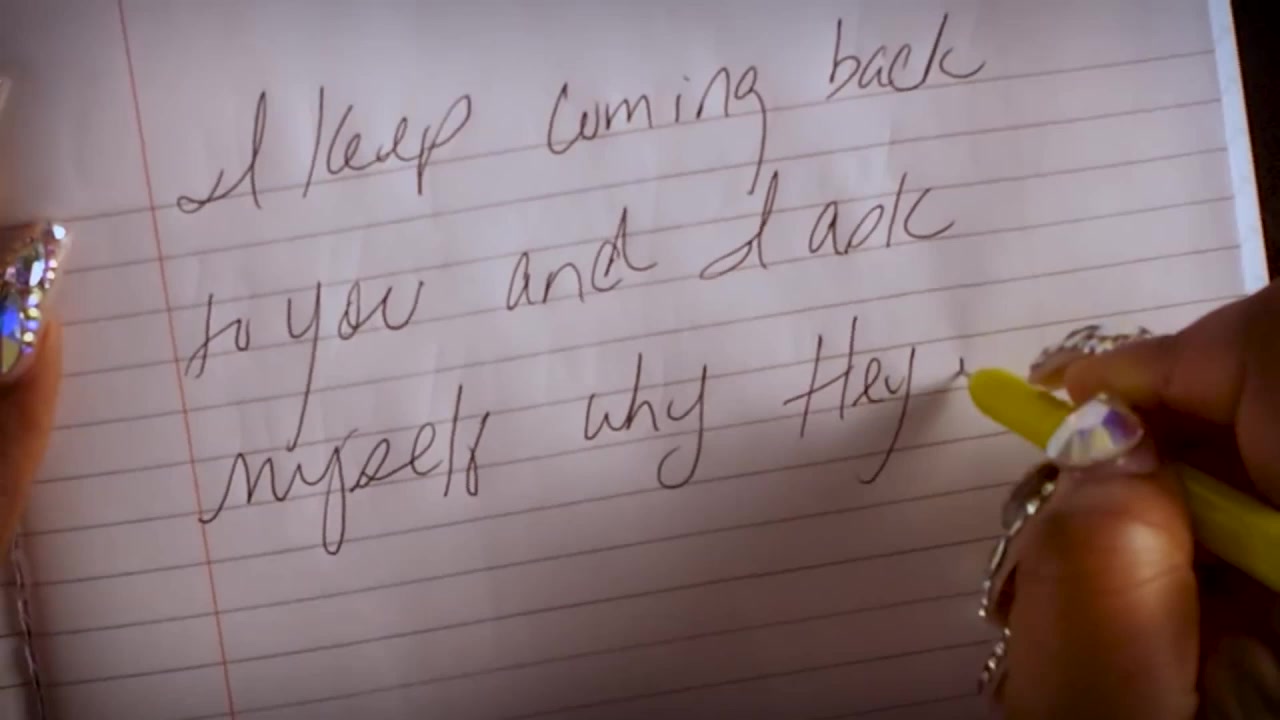 I keep coming back
to you and I ask
myself why Hey